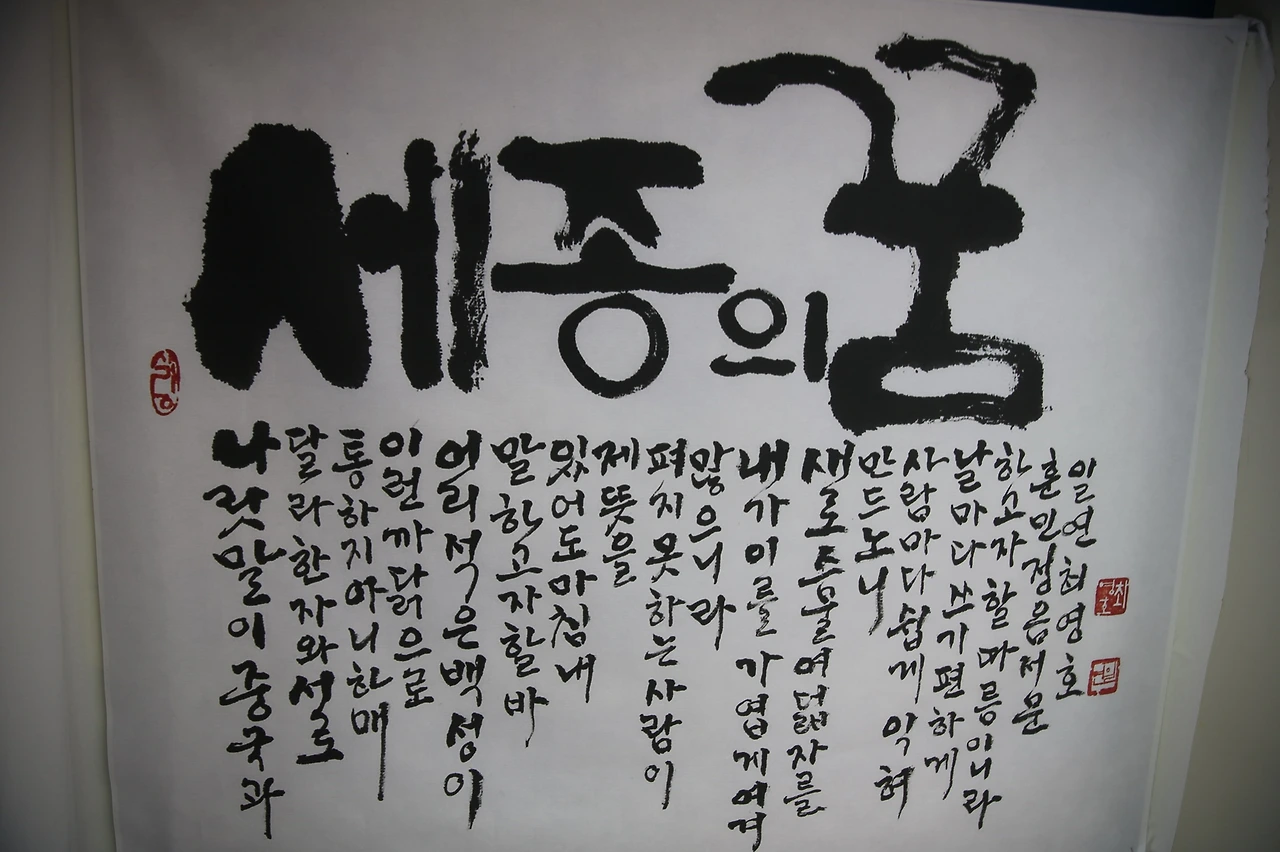 세종의꿈
나랏말이중국과
달라한자와서로
통하지아니하매
이런까닭으로
어리석은백성이
말하고자할바
있어도마침내
제뜻을
펴지못하는사람이
많으니라
내가이를가엽게여겨
새로스물여덟자를
만드노니
사람마다쉽게익혀
날마다쓰기편하게
하고자할따름이니라
훈민정음서문
일연최영호
최영호